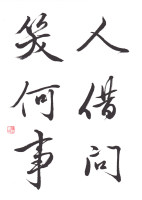 人借问
笑何事